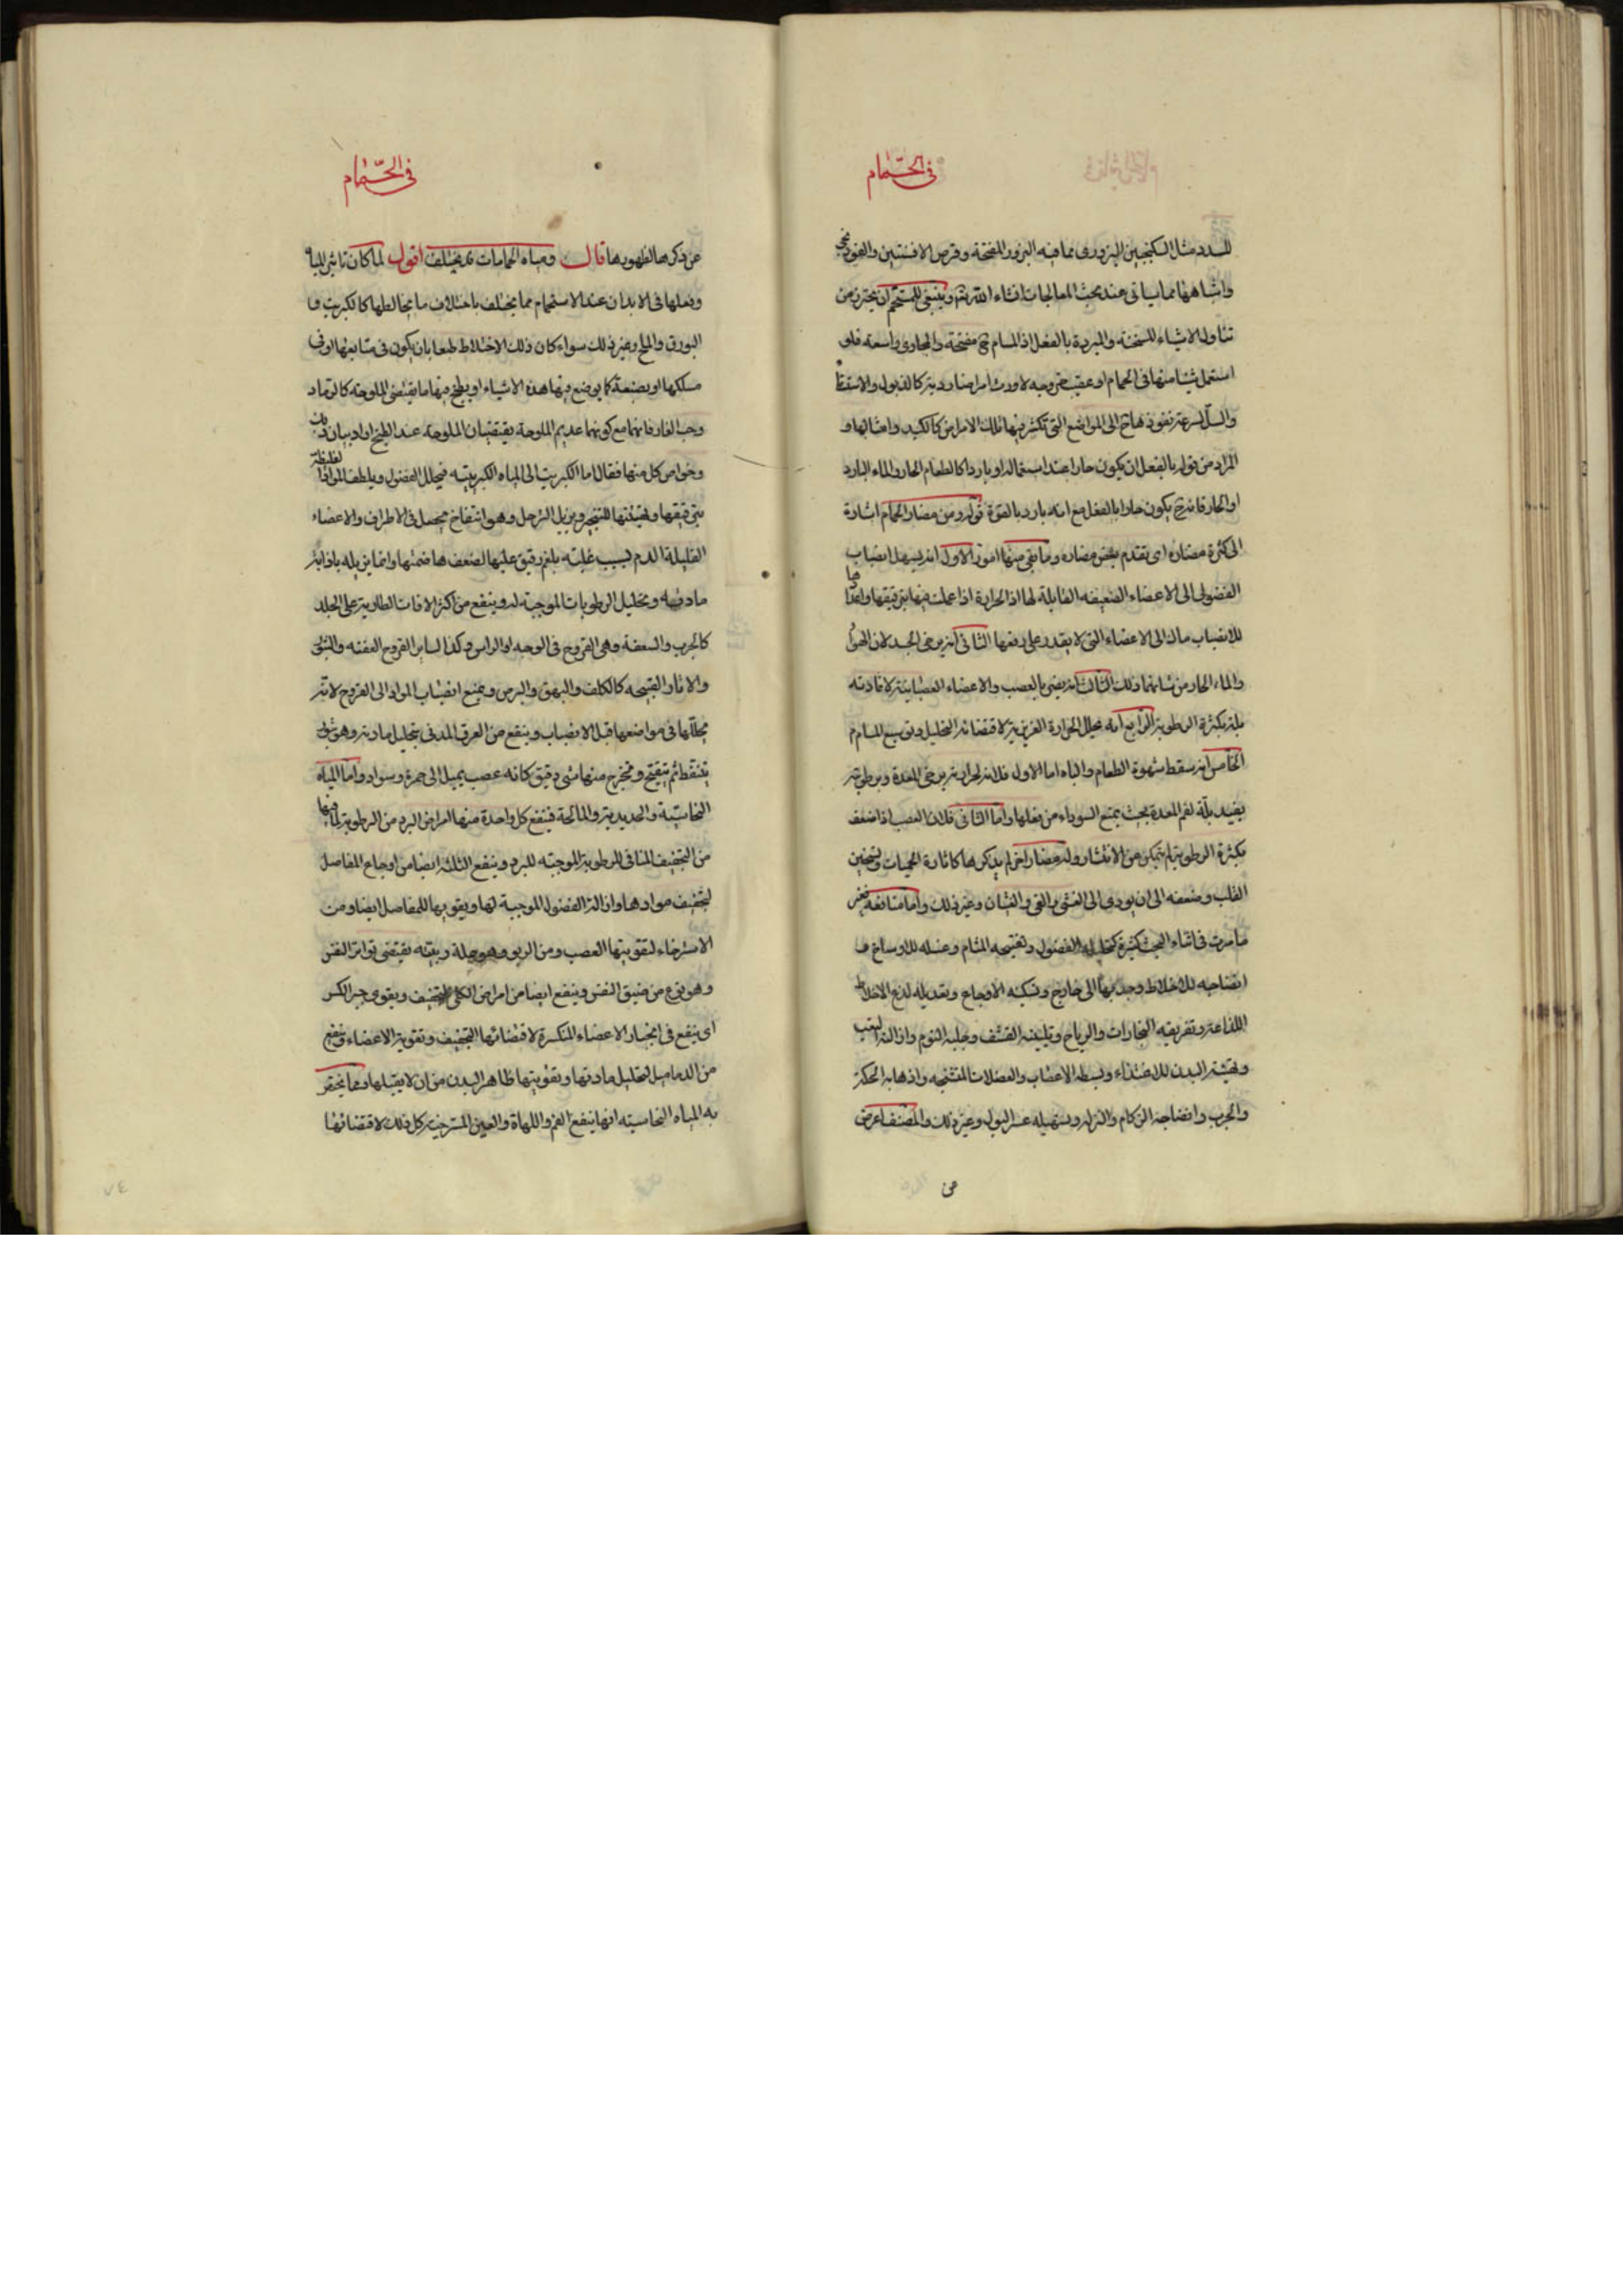 فى الحمام
للسدد مثل السكنجبين البزورى مما فيه البزور المفتحة وقرص الافسنتين والفودنجى
واشباهها مما سياتى عند بحث المعالجات انشاء الله تع وينبغى للمستحم ان يحترز من
تناول الاشياء المسخنة والمبردة بالفعل اذ المسام ح مفتحة والمجارى واسعة فلو
استعمل شيئا منها فى الحمام او عقيب خروجه لاورث امراضا ردية كالذبول والاستسقاء
والسل لسرعة نفوذها ح الى المواضع التى تكثر فيها تلك الامراض كالكبد وامثالها و
المراد من قوله بالفعل ان يكون حارا عند استعماله او باردا كالطعام الحار والماء البارد
او الحار فانه ح يكون حارا بالفعل مع انه بارد بالقوة قوله ومن مضار الحمام اشارة
الى كثرة مضاره اى تقدم بعض مضاره وما بقى منها امور الاول انه يسهل انصباب
الفضول الى الاعضاء الضعيفه القابلة لها اذ الحرارة اذا عملت فيها بترقيقها واعدادها
للانصباب مال الى الاعضاء التى لا يقدر على دفعها الثانى انه يرخى الجسد لان الهواء
والماء الحار من شانهما ذلك الثالث انه يضر بالعصب والاعضاء العصبانية لافادته
بلة بكثرة الرطوبة الرابع انه يحلل الحرارة الغريزية لاقتضائه التحليل وتوسيع المسام
الخامس انه يسقط شهوة الطعام والباه اما الاول فلانه لحرارته يرخى المعدة وبرطوبته
يفيد بلة لفم المعدة بحيث يمنع السوداء من فعلها واما الثانى فلان العصب اذا ضعف
بكثرة الرطوبة لم يتمكن من الانتشار وله مضار اخر لم يذكرها كاثارة الحميات وتسخين
القلب وضعفه الى ان يودى الى الغشى والقى والغثيان وغير ذلك واما منافعه فغير
ما مرت فى اثناء البحث كثيرة كتحليله الفضول وتفتيحه المسام وغسله للاوساخ و
انضاجه للاخلاط وجذبها الى خارج وتسكينه الاوجاع وتعديله لذع الاخلاط
اللذاعة وتفريقه البخارات والرياح وتليينه القشف وجلبه النوم وازالته التعب
وتهيئته البدن للاغتذاء وبسطه الاعصاب والعضلات المتشنجه واذهابه الحكة
والجرب وانضاجه الزكام والنزله وتسهيله عسر البول وغير ذلك والمصنف اعرض
من
فى الحمام
عن ذكرها لظهورها قال ومياه الحمامات قد يختلف اقول لما كان تاثير المياه
وفعلها فى الابدان عند الاستحمام مما يختلف باختلاف ما يخالطها كالكبريت و
البورق والملح وغير ذلك سواء كان ذلك الاختلاط طبعا بان يكون فى منابعها او فى
مسلكها او بصنعة كما يوضع فيها هذه الاشياء او يطبخ فيها ما يقتضى الملوحة كالرماد
وحب الغار فانهما مع كونهما عديم الملوحة يقتضيان الملوحة عند الطبخ اراد بيان ذلك
وخواص كل منها فقال اما الكبريت اى المياه الكبريتيه فيحلل الفضول ويلطف المواد الغليظة
بترقيقها وتهيئتها للتبخر ويزيل الترهل وهو انتفاخ يحصل فى الاطراف والاعضاء
القليلة الدم لسبب غلبته بلغم رقيق عليها لضعف هاضمتها وانما يزيله باذابة
مادته وتحليل الرطوبات الموجبة له وينفع من اكثر الافات الطارية على الجلد
كالجرب والسعفة وهى القروح فى الوجه او الراس وكذا لساير القروح العفنه والبثور
والاثار القبيحه كالكلف والبهق والبرص ويمنع انصباب المواد الى القروح لانه
يحللها فى مواضعها قبل الانصباب وينفع من العرق المدنى بتحليل مادته وهو بثور
تتنفط ثم يتفتح ويخرج منها شى دقيق كانه عصب يميل الى حمرة وسواد واما المياه
النحاسية والحديدية والمالحة فينفع كل واحدة منها امراض البرد من الرطوبة لما فيها
من التجفيف المنافى للرطوبة الموجبة للبرد وينفع الثلثه ايضا من اوجاع المفاصل
لتجفيف موادها وازالة الفضول الموجبة لها وتقويتها للمفاصل ايضا ومن
الاسترخاء لتقويتها العصب ومن الربو وهو علة رييته يقتضى تواتر النفس
وهو نوع من ضيق النفس وينفع ايضا من امراض الكلى لتجفيف ويقوى جبر الكسر
اى ينفع فى انجبار الاعضاء المنكسرة لاقتضائها التجفيف وتقوية الاعضاء وينفع
من الدماميل لتحليل مادتها وتقويتها ظاهر البدن من ان لا يقبلها ومما يختص
به المياه النحاسيه انها ينفع الفم واللهاة والعين المسترخية كل ذلك لاقتضائها
٧٤